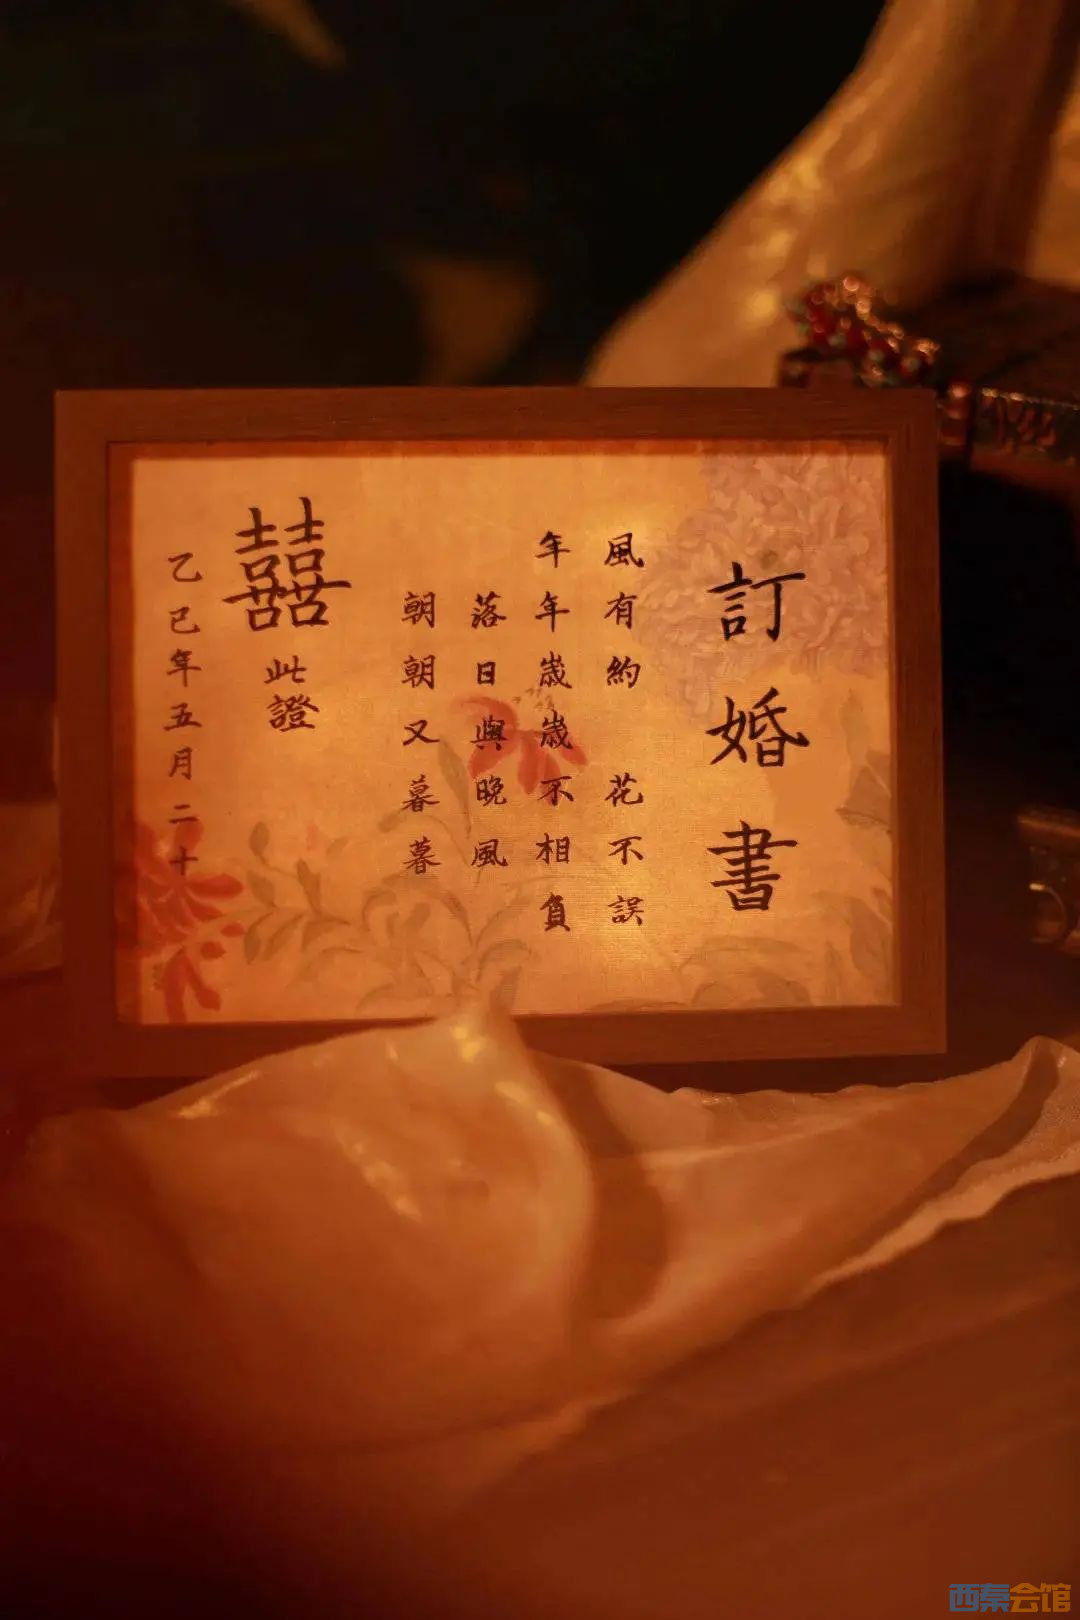 訂婚書
風有約 花不誤
年年歲歲不相負
落日與晚風
朝朝又暮暮
囍
此證
乙巳年五月二十
西秦会馆